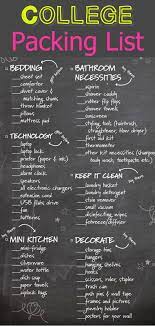 COLLEGE
Packing List
BEDDING
sheet set
comforter
duvet cover
matching shams
throw blanket
pillows
TECHNOLOGY
laptop
laptop lock
printer (paper & ink)
headphones
alarm clock
speakers
all electronic chargers
extension cord
USB flash drive
fan
tv
MINI KITCHEN
mini-fridge
dishes
silverware
water bottle
dish soap
paper towels
ziplock bags
BATHROOM
NECESSITIES
aspirin
shower caddy
rubber flip flops
shower towels
cosmetics
hair tools, (hairbrush,
straightener, blow dryer)
first aid kit
thermometer
shower kit necessities (shampoo
body wash, toothpaste etc.)
KEEP IT CLEAN
laundry basket
laundry detergent
stain remover
small vacuum
disinfecting wipes
febreeze/disinfecter
DECORATE
storage bin
hangers
hanging shelves
hooks
scissors, ruler, stapler
trash can
push pins & wall tape
frames and pictures